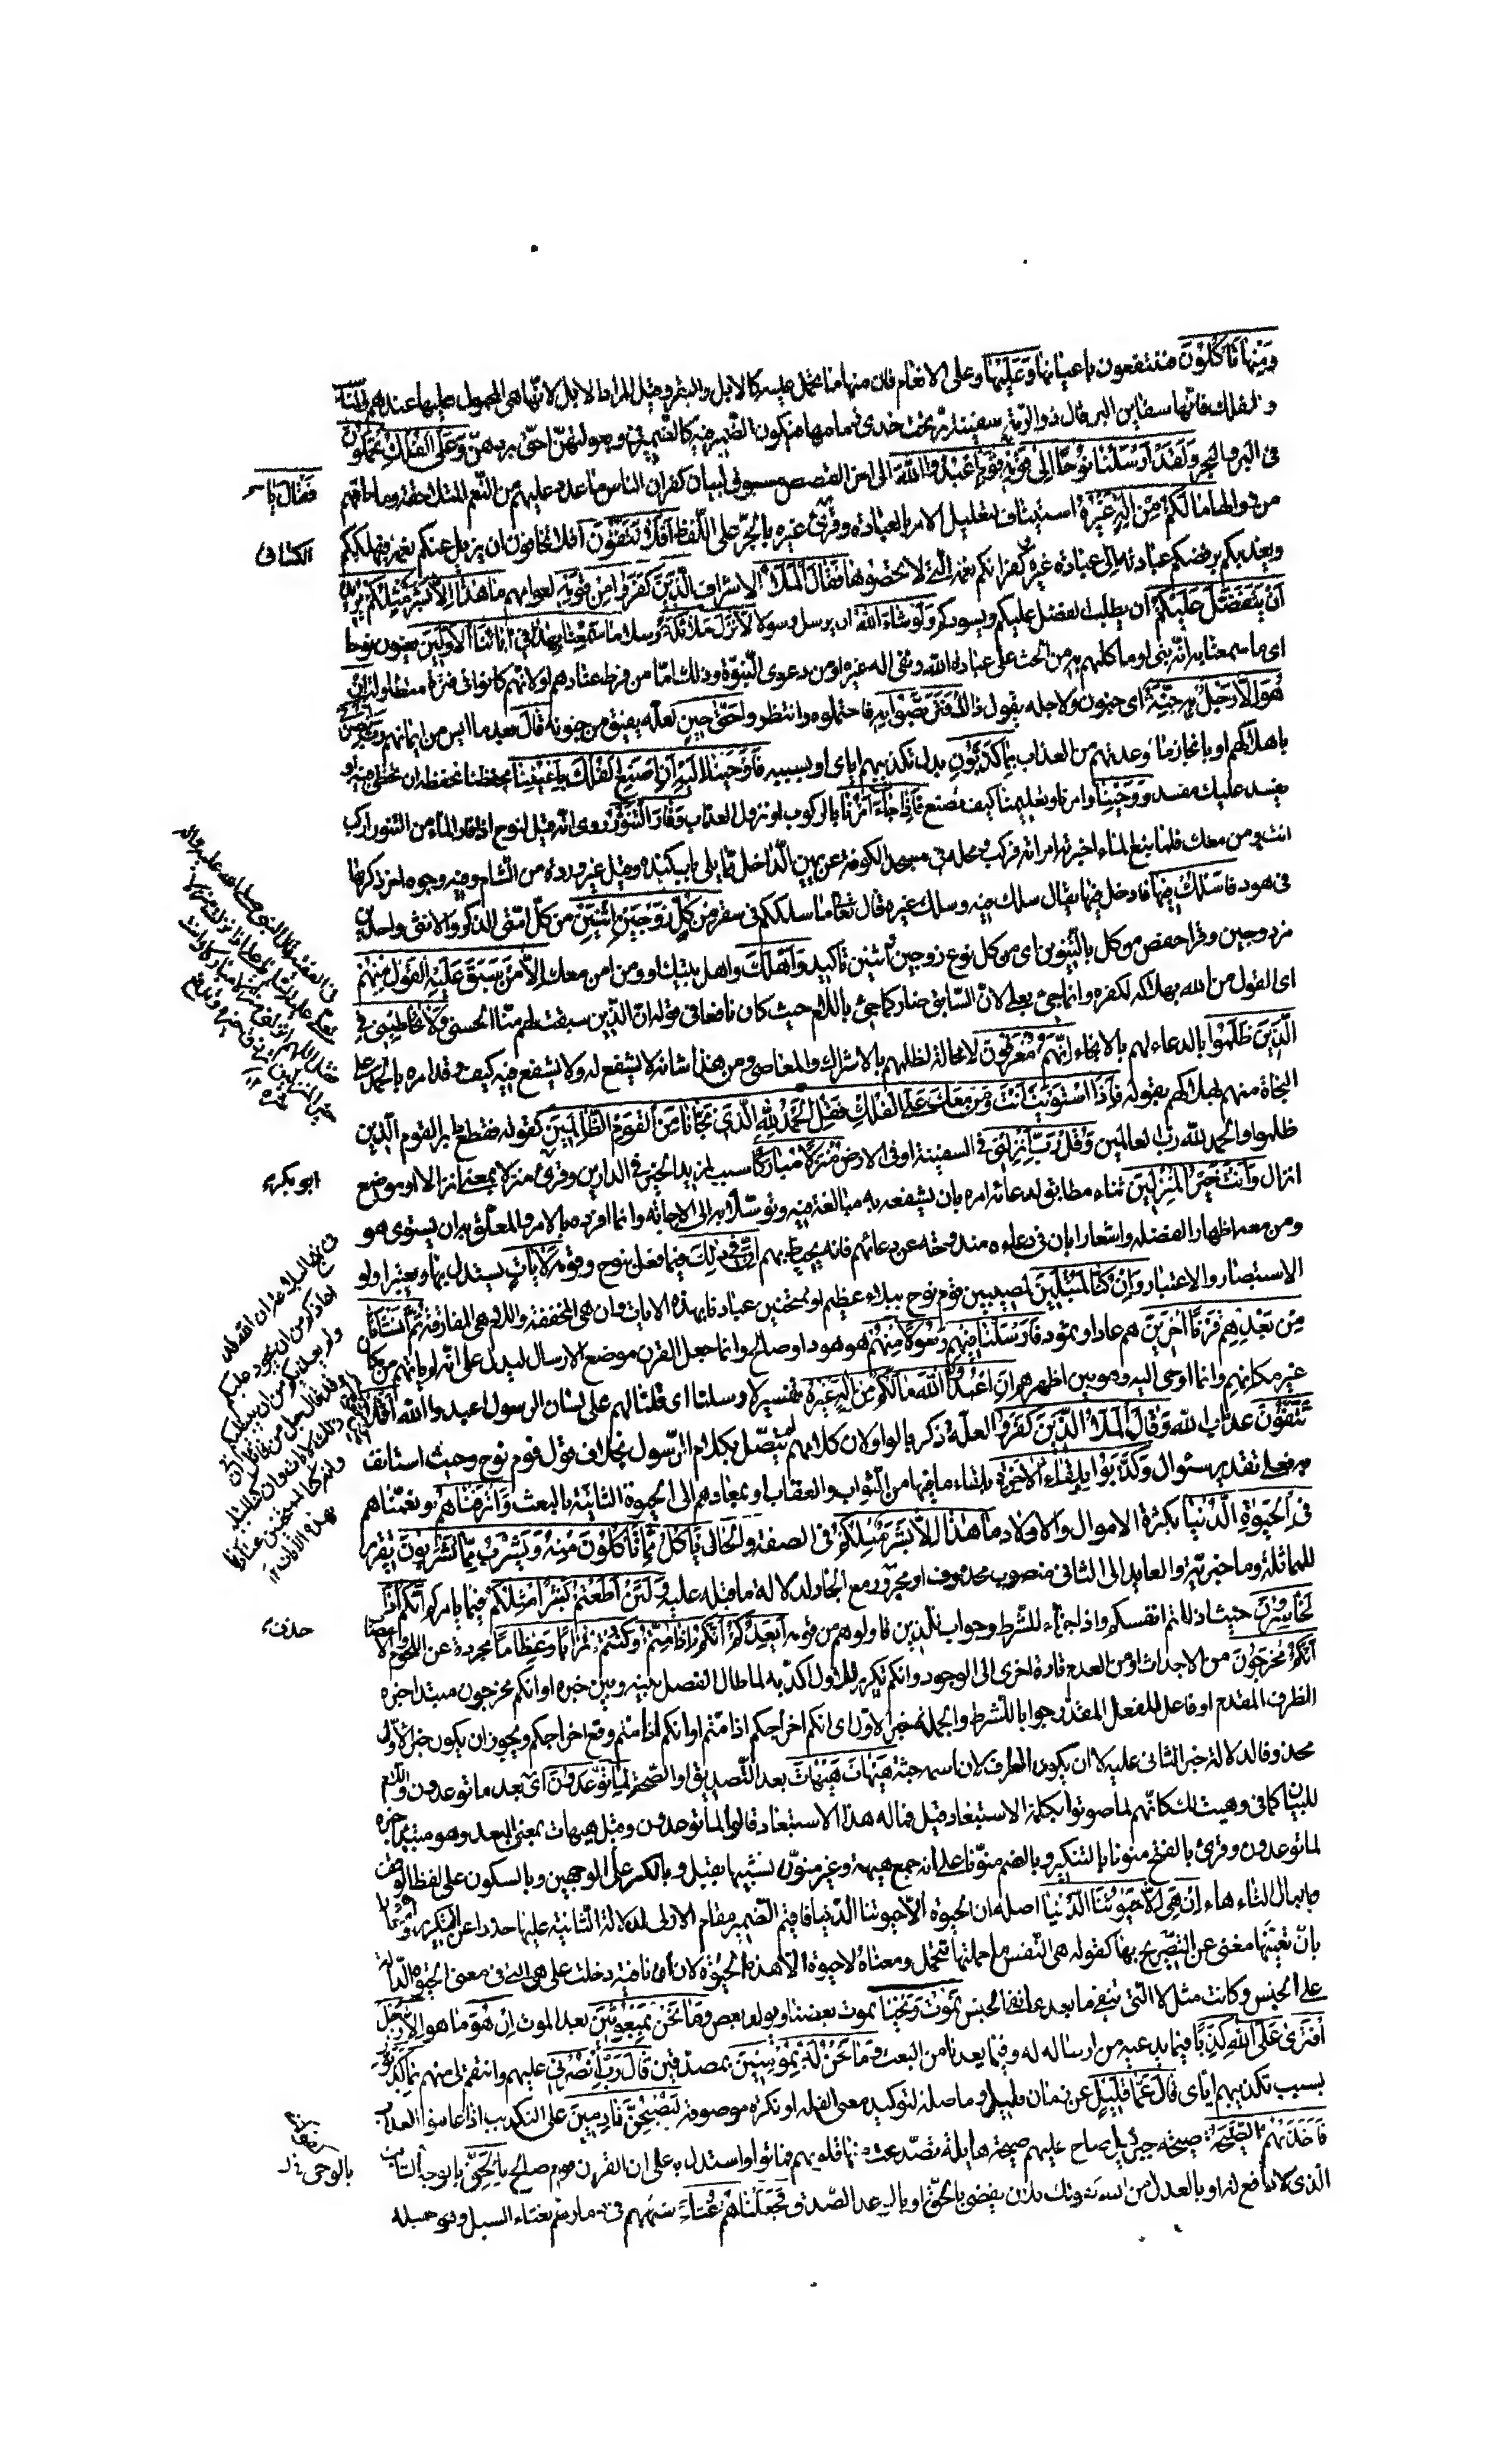 وَمِنْهَا تَأْكُلُونَ فتنتفعون باعيانها وَعَلَيْهَا وعلى الانعام فان منها ما يحمل عليه كالابل والبقر وقيل المراد الابل لانها هى المحمول عليها عندهم والمناسب
للفلك فانها سفاين البر قال ذو الرمة سفينة بر تحت خدى زمامها فيكون الضمير فيه كالضمير فى وبعولتهن احق بردهن وَعَلَى الْفُلْكِ تُحْمَلُونَ
فى البر والبحر وَلَقَدْ أَرْسَلْنَا نُوحًا إِلَى قَوْمِهِ فَقَالَ يَا قَوْمِ اعْبُدُوا اللَّهَ الى اخر القصص مسوق لبيان كفران الناس ما عدد عليهم من النعم المتلاحقة وما حاقهم
من زوالها مَا لَكُمْ مِنْ إِلَهٍ غَيْرُهُ استيناف لتعليل الامر بالعبادة وقرئ غيره بالجر على اللفظ أَفَلَا تَتَّقُونَ افلا تخافون ان يزيل عنكم نعمه فيهلككم
ويعذبكم برفضكم عبادته الى عبادة غيره وكفرانكم نعمه التى لا تحصوها فَقَالَ الْمَلَأُ الاشراف الَّذِينَ كَفَرُوا مِنْ قَوْمِهِ لعوامهم مَا هَذَا إِلَّا بَشَرٌ مِثْلُكُمْ يُرِيدُ
أَنْ يَتَفَضَّلَ عَلَيْكُمْ ان يطلب الفضل عليكم ويسودكم وَلَوْ شَاءَ اللَّهُ ان يرسل رسولا لَأَنْزَلَ مَلَائِكَةً رسلا مَا سَمِعْنَا بِهَذَا فِي آبَائِنَا الْأَوَّلِينَ يعنون نوحا
اى ما سمعنا به انه نبى او ما كلمهم به من الحث على عبادة الله ونفى اله غيره او من دعوى النبوة وذلك اما من فرط عنادهم او لانهم كانوا فى فترة متطاولة إِنْ
هُوَ إِلَّا رَجُلٌ بِهِ جِنَّةٌ اى جنون ولاجله يقول ذلك فَتَرَبَّصُوا بِهِ فاحتملوه وانتظروا حَتَّى حِينٍ لعله يفيق من جنونه قَالَ بعد ما ايس من ايمانهم رَبِّ انْصُرْنِي
باهلاكهم او بانجاز ما وعدتهم من العذاب بِمَا كَذَّبُونِ بدل تكذيبهم اياى او بسببه فَأَوْحَيْنَا إِلَيْهِ أَنِ اصْنَعِ الْفُلْكَ بِأَعْيُنِنَا بحفظنا نحفظه ان تخطئ فيه او
يفسد عليك مفسد وَوَحْيِنَا وامرنا وتعليمنا كيف تصنع فَإِذَا جَاءَ أَمْرُنَا بالركوب او نزول العذاب وَفَارَ التَّنُّورُ روى انه قيل لنوح اذا فار الماء من التنور اركب
انت ومن معك فلما نبع الماء اخبرته امراته فركب ومحله فى مسجد الكوفة عن يمين الداخل مما يلى باب كندة وقيل عين وردة من الشام وفيه وجوه اخر ذكرتها
فى هود فَاسْلُكْ فِيهَا فادخل فيها يقال سلك فيه وسلك غيره قال تعالى ما سلككم فى سقر مِنْ كُلٍّ زَوْجَيْنِ اثْنَيْنِ من كل امتى الذكر والانثى واحدين
مزدوجين وقرا حفص من كل بالتنوين اى من كل نوع زوجين اثنين تاكيد وَأَهْلَكَ واهل بيتك او ومن امن معك إِلَّا مَنْ سَبَقَ عَلَيْهِ الْقَوْلُ مِنْهُمْ
اى القول من الله بهلاكه لكفره وانما جئ بعلى لان السابق ضار كما جئ باللام حيث كان نافعا فى قوله ان الذين سبقت لهم منا الحسنى وَلَا تُخَاطِبْنِي فِي
الَّذِينَ ظَلَمُوا بالدعاء لهم بالانجاء إِنَّهُمْ مُغْرَقُونَ لا محالة لظلمهم بالاشراك والمعاصى ومن هذا شانه لا يشفع له ولا يشفع فيه كيف وقد امره بالحمد على
النجاة منهم بهلاكهم بقوله فَإِذَا اسْتَوَيْتَ أَنْتَ وَمَنْ مَعَكَ عَلَى الْفُلْكِ فَقُلِ الْحَمْدُ لِلَّهِ الَّذِي نَجَّانَا مِنَ الْقَوْمِ الظَّالِمِينَ كقوله فقطع دابر القوم الذين
ظلموا والحمد لله رب العالمين وَقُلْ رَبِّ أَنْزِلْنِي فى السفينة او فى الارض مُنْزَلًا مُبَارَكًا سبب لمزيد الخير فى الدارين وقرئ منزلا بمعنى انزالا او موضع
انزال وَأَنْتَ خَيْرُ الْمُنْزِلِينَ ثناء مطابق لدعائه امره بان يشفعه به مبالغة فيه وتوسلا به الى الاجابة وانما افرده بالامر والمعلق به ان يستوى هو
ومن معه اظهارا لفضله واشعارا بان فى دعاءه مندوحة عن دعائهم فانه يحيط بهم إِنَّ فِي ذَلِكَ فيما فعل بنوح وقومه لَآيَاتٍ يستدل بها ويعتبر اولو
الاستبصار والاعتبار وَإِنْ كُنَّا لَمُبْتَلِينَ لمصيبين قوم نوح ببلاء عظيم او ممتحنين عبادنا بهذه الايات وان هى المخففة واللام هى الفارقة ثُمَّ أَنْشَأْنَا
مِنْ بَعْدِهِمْ قَرْنًا آخَرِينَ هم عاد او ثمود فَأَرْسَلْنَا فِيهِمْ رَسُولًا مِنْهُمْ هو هود او صالح وانما جعل القرن موضع الارسال ليدل على انه لم ياتهم من مكان
غير مكانهم وانما اوحى اليه وهو بين اظهرهم أَنِ اعْبُدُوا اللَّهَ مَا لَكُمْ مِنْ إِلَهٍ غَيْرُهُ تفسير لارسلنا اى قلنا لهم على لسان الرسول اعبدوا الله أَفَلَا
تَتَّقُونَ عذاب الله وَقَالَ الْمَلَأُ الَّذِينَ كَفَرُوا لعله ذكر بالواو لان كلامهم لم يتصل بكلام الرسول بخلاف قول قوم نوح وحيث استانف
به فعلى تقدير سئوال وَكَذَّبُوا بِلِقَاءِ الْآخِرَةِ بلقاء ما فيها من الثواب والعقاب او بمعادهم الى الحيوة الثانية بالبعث وَأَتْرَفْنَاهُمْ ونعمناهم
فِي الْحَيَاةِ الدُّنْيَا بكثرة الاموال والاولاد مَا هَذَا إِلَّا بَشَرٌ مِثْلُكُمْ فى الصفة والحال يَأْكُلُ مِمَّا تَأْكُلُونَ مِنْهُ وَيَشْرَبُ مِمَّا تَشْرَبُونَ تقرير
للمماثلة وما خبرية والعايد الى الثانى منصوب محذوف او مجرور مع الجار لدلالة ما قبله عليه وَلَئِنْ أَطَعْتُمْ بَشَرًا مِثْلَكُمْ فيما يامركم إِنَّكُمْ إِذًا
لَخَاسِرُونَ حيث اذللتم انفسكم واذا جزاء للشرط وجواب للذين قاولوهم من قومه أَيَعِدُكُمْ أَنَّكُمْ إِذَا مِتُّمْ وَكُنْتُمْ تُرَابًا وَعِظَامًا مجردة عن اللحوم والاعصاب
أَنَّكُمْ مُخْرَجُونَ من الاجداث او من العدم تارة اخرى الى الوجود وانكم تكرير للاول اكد به لما طال الفصل بينه وبين خبره او انكم مخرجون مبتدا خبره
الظرف المقدم او فاعل للفعل المقدر جوابا للشرط والجملة خبر الاول اى انكم اخراجكم اذا متم او انكم اذا متم وقع اخراجكم ويجوز ان يكون خبر الاول
محذوفا لدلالة خبر الثانى عليه لا ان يكون الظرف لان اسمه جثة هَيْهَاتَ هَيْهَاتَ بعد التصديق او الصحة لِمَا تُوعَدُونَ اى بعد ما توعدون واللام
للبيان كما فى هيت لك كانهم لما صوتوا بكلمة الاستبعاد قيل فما له هذا الاستبعاد قالوا لما توعدون وقيل هيهات بمعنى البعد وهو مبتدا خبره
لما توعدون وقرئ بالفتح منونا بالتنكير وبالضم منونا على انه جمع هيهة وغير منون تشبيها بقبل وبالكسر على الوجهين وبالسكون على لفظ الوقف
وبابدال التاء هاء إِنْ هِيَ إِلَّا حَيَاتُنَا الدُّنْيَا اصله ان الحيوة الا حيوتنا الدنيا فاقيم الضمير مقام الاولى لدلالة الثانية عليها حذرا عن التكرير واشعارا
بان تعينها مغنى عن التصريح بها كقوله هى النفس ما حملتها تتحمل ومعناه لا حيوة الا هذه الحيوة لان ان نافية دخلت على هى التى فى معنى الحيوة الدالة
على الجنس وكانت مثل لا التى تنفى ما بعدها نفى الجنس نَمُوتُ وَنَحْيَا يموت بعضنا ويولد بعض وَمَا نَحْنُ بِمَبْعُوثِينَ بعد الموت إِنْ هُوَ ما هو إِلَّا رَجُلٌ
افْتَرَى عَلَى اللَّهِ كَذِبًا فيما يدعيه من ارساله له وفيما يعدنا من البعث وَمَا نَحْنُ لَهُ بِمُؤْمِنِينَ بمصدقين قَالَ رَبِّ انْصُرْنِي عليهم وانتقم لى منهم بِمَا كَذَّبُونِ
بسبب تكذيبهم اياى قَالَ عَمَّا قَلِيلٍ عن زمان قليل وما صلة لتوكيد معنى القلة او نكرة موصوفة لَيُصْبِحُنَّ نَادِمِينَ على التكذيب اذا عاينوا العذاب
فَأَخَذَتْهُمُ الصَّيْحَةُ صيحة جبرئيل صاح عليهم صيحة هايلة تصدعت منها قلوبهم فماتوا واستدل به على ان القرن قوم صالح بِالْحَقِّ بالوجه الثابت
الذى لا دافع له او بالعدل من الله كقولك فلان يقضى بالحق او بالوعد الصدق فَجَعَلْنَاهُمْ غُثَاءً شبههم فى دمارهم بغثاء السيل وهو حميله
فقال يا
الكسائى
ابو بكر
حذف
كقوله
بالوحى